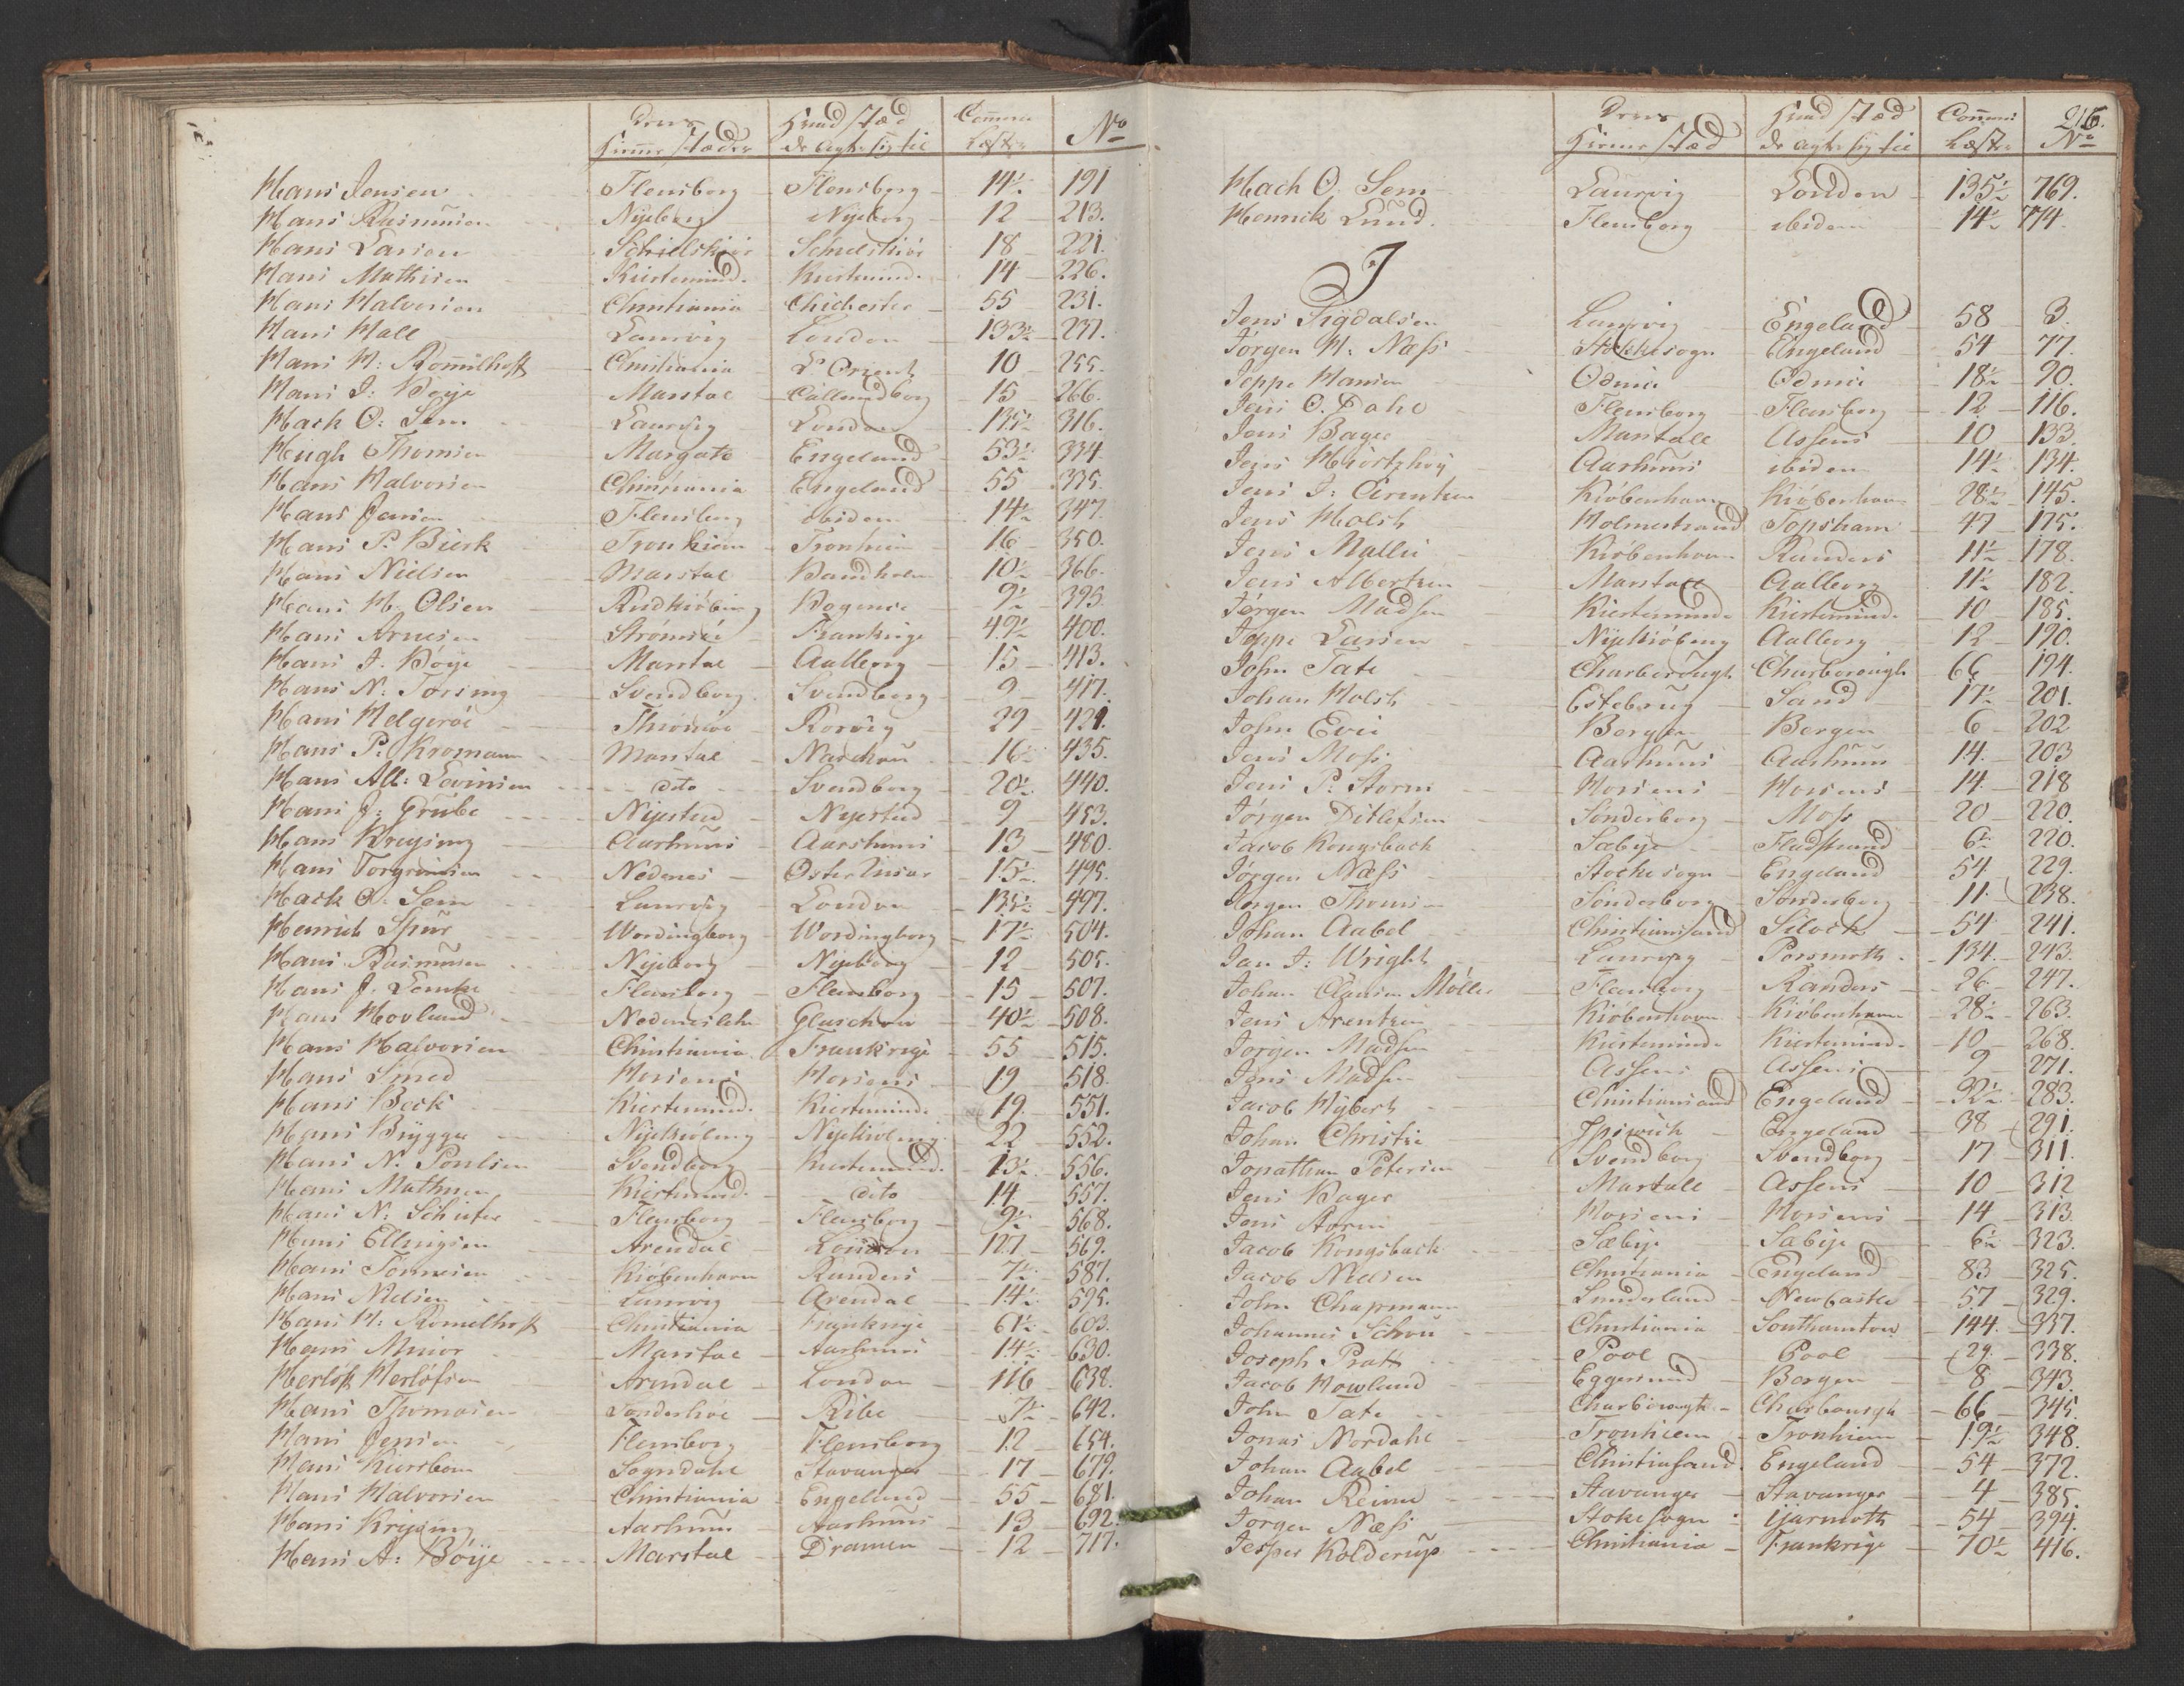 Deres Hvad Stæd Commer
Hiemme Stæder de agte sig til Læster No
Hans Jensen Flensborg Flensborg 14½ 191
Hans Rasmusen Nyeborg Nyeborg 12 213.
Hans Larsen Schielskiør Schielskiør 18 221.
Hans Mathisen Kierteminde Kierteminde 14 226.
Hans Halvorsen Christiania Chichester 55 231.
Hans Hall Laurvig London 133½ 237.
Hans H: Romelhoft Christiania L'Orient 10 255.
Hans J: Boye Marstal Callundborg 15 266.
Hack O: Sem Laurvig London 135½ 316.
Hugh Thomsen Margate Engeland 53½ 334
Hans Halvorsen Christiania Engeland 55 335.
Hans Jensen Flensborg ibidem 14½ 347.
Hans P. Bierk Tronhiem Tronhiem 16 350.
Hans Nielsen Marstal Bandholm 10½ 366.
Hans H. Olsen Rudkiøbing Bogense 9½ 395
Hans Arnesen Strømsøe Frankrige 49½ 400.
Hans J. Bøye Marstal Aalborg 15 413.
Hans N: Torsing Svendborg Svendborg 9 417.
Hans Helgeröe Rorvig 29 421.
Hans P: Kromann Marstal Naschou 16½ 435.
Hans Alb: Levinsen dito Svendborg 20½ 440.
Hans J: Grube Nyested Nyested 9 453.
Hans Kreysing Aarhuus Aarshuus 13 480.
Hans Torgrimsen Nedenes Øster Riisøer 15½ 495.
Hack O. Sem Laurvig London 135½ 497.
Henrich Spur Wordingborg Wordingborg 17½ 504.
Hans Rasmusen Nyeborg Nyeborg 12 505.
Hans J. Lemke Flensborg Flensborg 15 507.
Hans Hovland Nedeneslehn Glaschou 40½ 508.
Hans Halvorsen Christiania Frankrige 55 515.
Hans Smed Horsens Horsens 19 518.
Hans Beck Kierteminde Kierteminde 19. 551.
Hans Brygger Nyekiøbing Nyekiøbing 22 552.
Hans N. Poulsen Svendborg Kierteminde 13½ 556.
Hans Mathisen Kierteminde dito 14 557.
Hans N: Schiefer Flensborg Flensborg 9½ 568.
Hans Ellingsen Arendal London 127 569.
Hans Tønnesen Kiøbenhavn Randers 7½ 587.
Hans Nielsen Laurvig Arendal 14½ 595.
Hans H: Romelhoft Christiania Frankrige 61½ 603.
Hans Minor Marstal Aarhuus 14½ 630.
Herløf Herløfsen Arendal London 116 638.
Hans Thomasen Sonderhoe Ribe 7½ 642.
Hans Jensen Flensborg Flensborg 12 654.
Hans Sogndahl Stavanger 17 679.
Hans Halvorsen Christiania Engelland 55 681.
Hans Krysing Aarhuus Aarhuus 13 692.
Hans A: Böye Marstal Dramen 12 717.
Deres Hvad Stæd Commer 216.
Hiemme Stæd de agte sig til Læster No
Hack O. Sem Laurvig London 135½ 769.
Hennik Lund Flensborg ibidem 14½ 774.
J
Jens Sigdalsen Laurvig Engeland 58 3.
Jørgen H: Næss Stokkesogn Engeland 54 77.
Jeppe Hansen Odense Odense 18½ 90.
Jens O. Dahl Flensborg Flensborg 12 116.
Jens Bager Marstall Assens 10 133.
Jens Hiørtzhøy Aarhuus ibidem 14½ 134.
Jens J: Arentzen Kiöbenhavn Kiöbenhavn 28½ 145.
Jens Holst Holmestrand Topsham 47 175.
Jens Malle Kiöbenhavn Randers 11½ 178.
Jens Albertsen Marstall Aalborg 11½ 182.
Jørgen Madsen Kierteminde Kierteminde 10 185.
Jeppe Larsen Nyekiöbing Aalborg 12 190.
John Tate Charborough Charborough 66 194.
Johan Holst Estebrug Sand 17½ 201.
John Evei Bergen Bergen 6 202
Jens Moss Aarhuus Aarhuus 14 203
Jens P: Storm Horsens Horsens 14 218
Jörgen Ditlefsen Sonderborg Moss 20 220.
Jacob Kongsback Sæbye Fladstrand 6½ 220.
Jörgen Næss Stockesogn Engeland 54 229.
Jørgen Thomsen Sonderborg Sonderborg 11 238.
Johan Aabel Christiansand Silock 54 241.
Jan J: Wright Laurvig Porsmoth 134 243.
Johan Clausen Möller Flensborg Randers 26 247.
Jens Arentzen Kiöbenhavn Kiöbenhavn 28½ 263.
Jörgen Madsen Kierteminde Kierteminde 10 268.
Jens Madsen Assens Assens 9 271.
Jacob Hybert Christiansand Engeland 32½ 283.
Johan Christie Ipswich Engeland 38 291.
Jonathan Petersen Svendborg Svendborg 17 311.
Jens Bager Marstall Assens 10 312
Jens Storm Horsens Horsens 14 313.
Jacob Kongsback Sæbye Sæbye 6½ 323.
Jacob Nielsen Christiania Engeland 83 325.
John Chapmann Sunderland Newcastle 57 329.
Johannes Schou Christiania Southamton 144 337.
Joseph Pratt Pool Pool 29 338.
Jacob Howland Eggersund Bergen 8 343.
John Tate Charborough Charborough 66 345.
Jonas Nordahl Tronhiem Tronhiem 19½ 348.
Johan Aabel Christiansand Engeland 54 372.
Johan Reime Stavanger Stavanger 4 385.
Jörgen Næss Stokesogn Yarmoth 54 394.
Jesper Kolderup Christiania Frankrige 70½ 416.